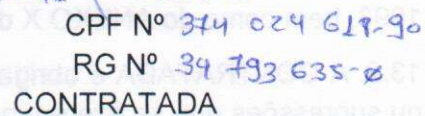 CPF Nº 374 024 618-90
RG Nº 34 793 635-0
CONTRATADA